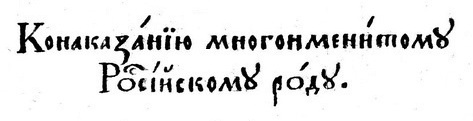 Конаказа́нїю многоимени́томꙋ
Роⷭ҇сі́йскомꙋ ро́дꙋ.